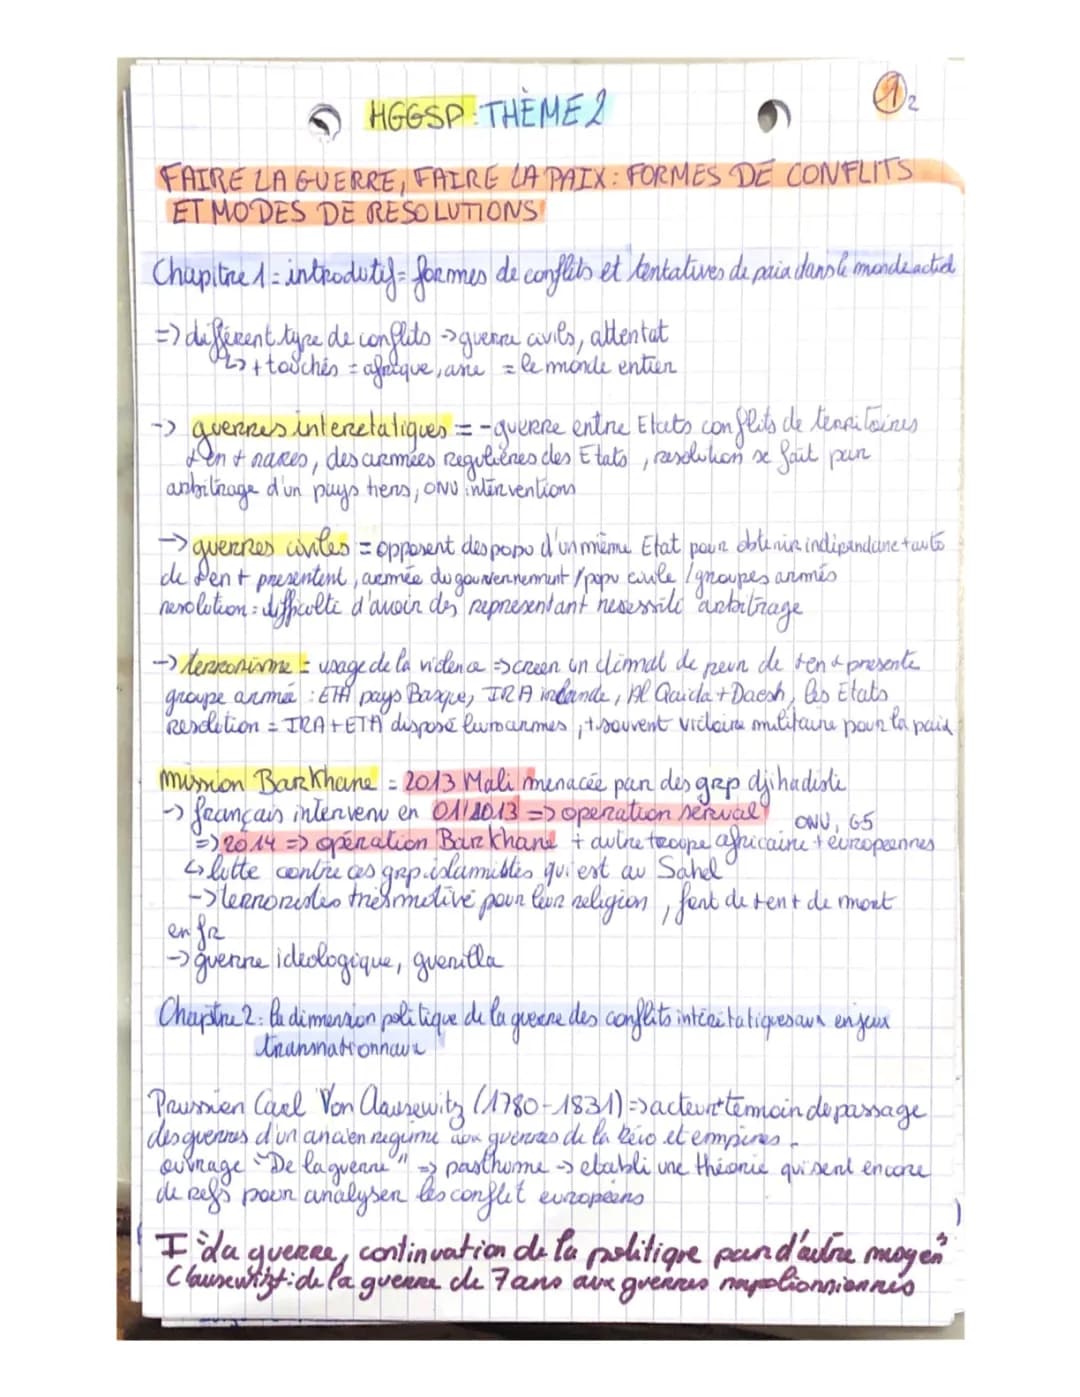 1 2
HGGSP : THÈME 2
FAIRE LA GUERRE, FAIRE LA PAIX : FORMES DE CONFLITS
ET MODES DE RESOLUTIONS
Chapitre 1 = introdutif = formes de conflits et tentatives de paix dans le monde actuel
=> différent type de conflits -> guerre civils, attentat
↳ + touchés = afrique, asie = le monde entier
-> guerres interetatiques = - guerre entre Etats conflits de territoires
de en + rares, des armées regulières des Etats, resolution se fait par
arbitrage d'un pays tiers, ONU interventions
-> guerres civiles = opposent des popu d'un même Etat pour obtenir indipendance + auto
de en + presentent, armée du gouvernement / popu civile / groupes armés
resolution = difficulté d'avoir des representant necessité arbitrage
-> terrorisme = usage de la violence => créer un climat de peur de + en + presente
groupe armée : ETA pays Basque, IRA irlande, Al Qaida + Daesh, les Etats
Resolition = IRA + ETA disposé leurs armes, + souvent victoire militaire pour la paix
mission Barkhane = 2013 Mali menacée par des grp djihadiste
-> français intervenu en 01/2013 => operation serval
ONU, G5
=> 2014 => opération Barkhane + autre troope africaine + européennes
↳ lutte contre ces grp islamistes qui est au Sahel
-> terroristes très motivé pour leur religion, font de + en + de mort
en fr
-> guerre idéologique, guerilla
Chapitre 2 : la dimmension politique de la guerre des conflits intéritatiques aux enjeux
transnationnaux
Prussien Carl Von Clausewitz (1780-1831) => acteur + témoin de passage
des guerres d'un ancien regime aux guerres de la Révo et empires.
ouvrage "De la guerre" => posthume -> etabli une théorie qui sert encore
de refs pour analyser les conflit européens
I "La guerre, continuation de la politique par d'autre moyen"
Clausewitz : de la guerre de 7 ans aux guerres napolionniennes